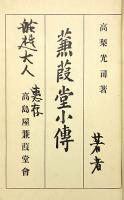 高梨光司著
著者
蒹葭堂小傳
大人
惠存
高島屋蒹葭堂會